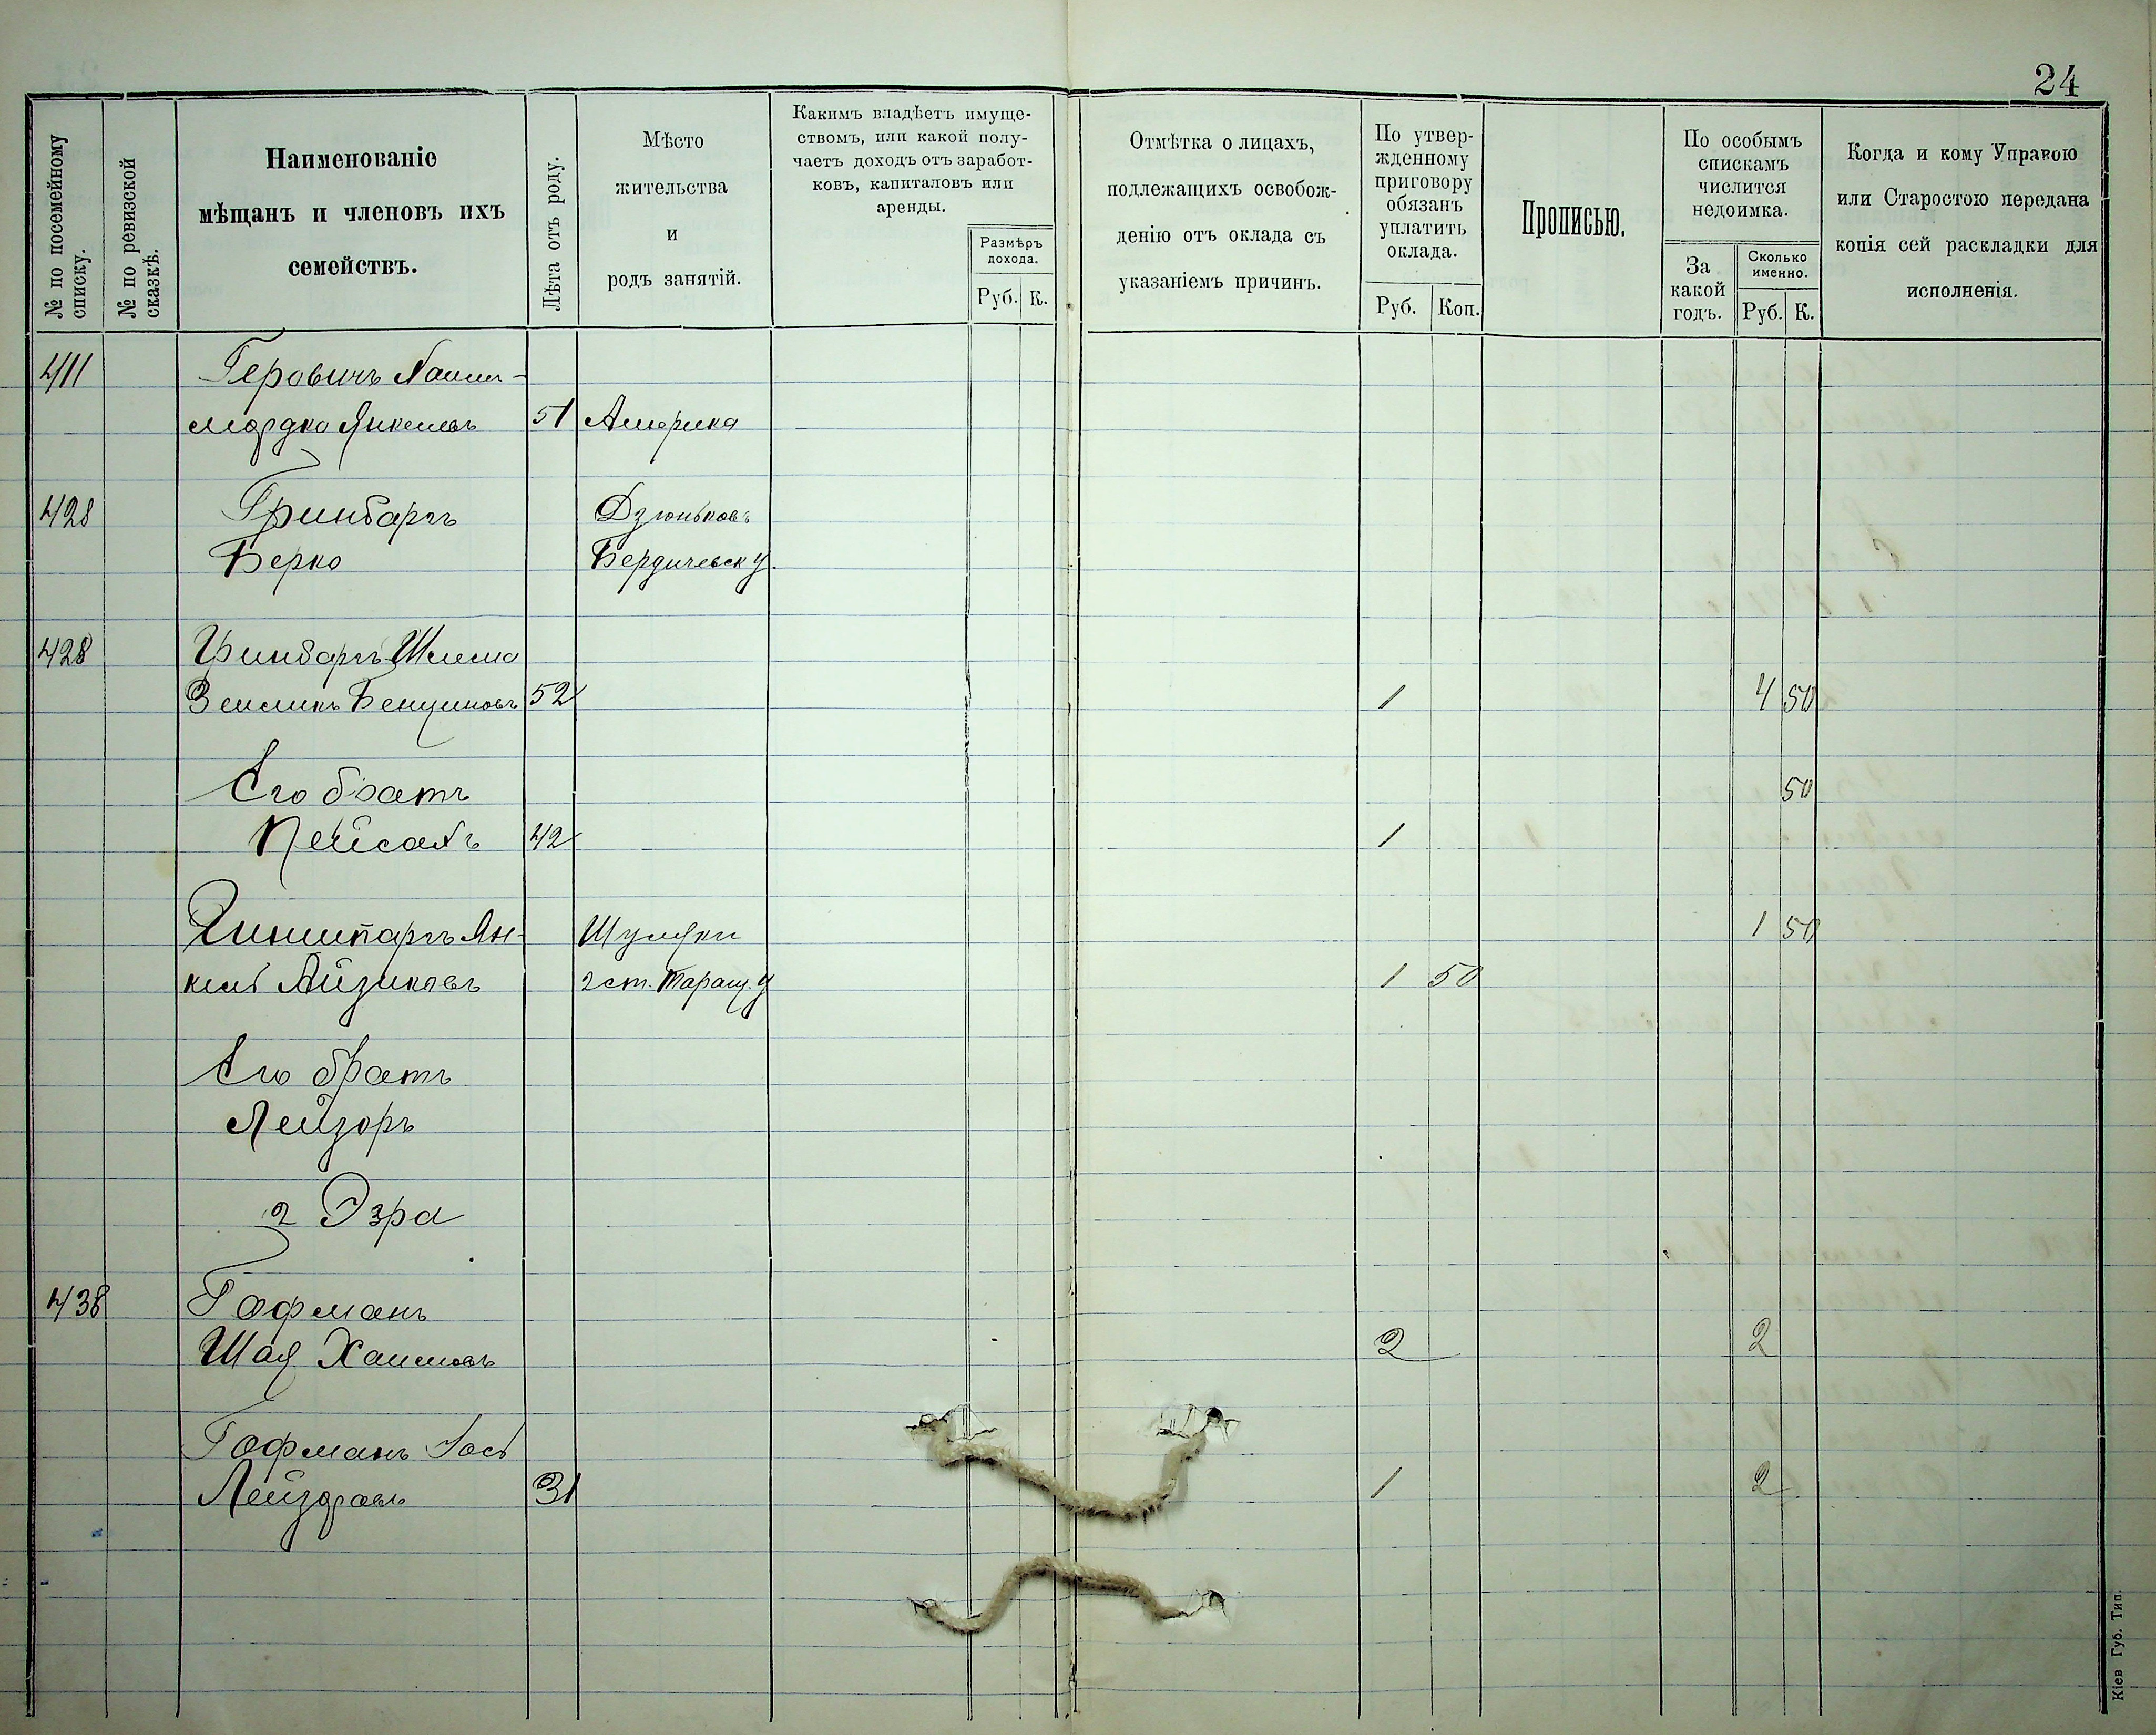 24
№ по посемейному списку.
№ по ревизской сказкѣ.
Наименованіе
мѣщанъ и членовъ ихъ
семействъ.
Лѣта отъ роду.
Мѣсто
жительства
и
родъ занятій.
Какимъ владѣетъ имуще-
ствомъ, или какой полу-
чаетъ доходъ отъ заработ-
ковъ, капиталовъ или
аренды.
Размѣръ
дохода.
Руб. К.
Отмѣтка о лицахъ,
подлежащихъ освобож-
денію отъ оклада съ
указаніемъ причинъ.
По утвер-
жденному
приговору
обязанъ
уплатить
оклада.
Руб. Коп.
Прописью.
По особымъ
спискамъ
числится
недоимка.
За
какой
годъ.
Сколько
именно.
Руб. К.
Когда и кому Управою
или Старостою передана
копія сей раскладки для
исполненія.
411 Геровичъ
мордко Янкелевъ 51 Америка
428 Гринбаргъ Дзюньковъ
Берко Бердичевск у.
428 Гринбаргъ Шлема
Зельманъ Бенционовъ 52 1 4 50
Его братъ 50
Пейсахъ 42 1
Ян- 1 50
кель Айзиковъ Таращ. у 1 50
Его братъ
Лейзоръ
2 Эзра
438 Гофманъ
Шая Хаимовъ 2 2
Гофманъ Іось
Лейзоровъ 31 1 2
Кіев Губ. Тип.